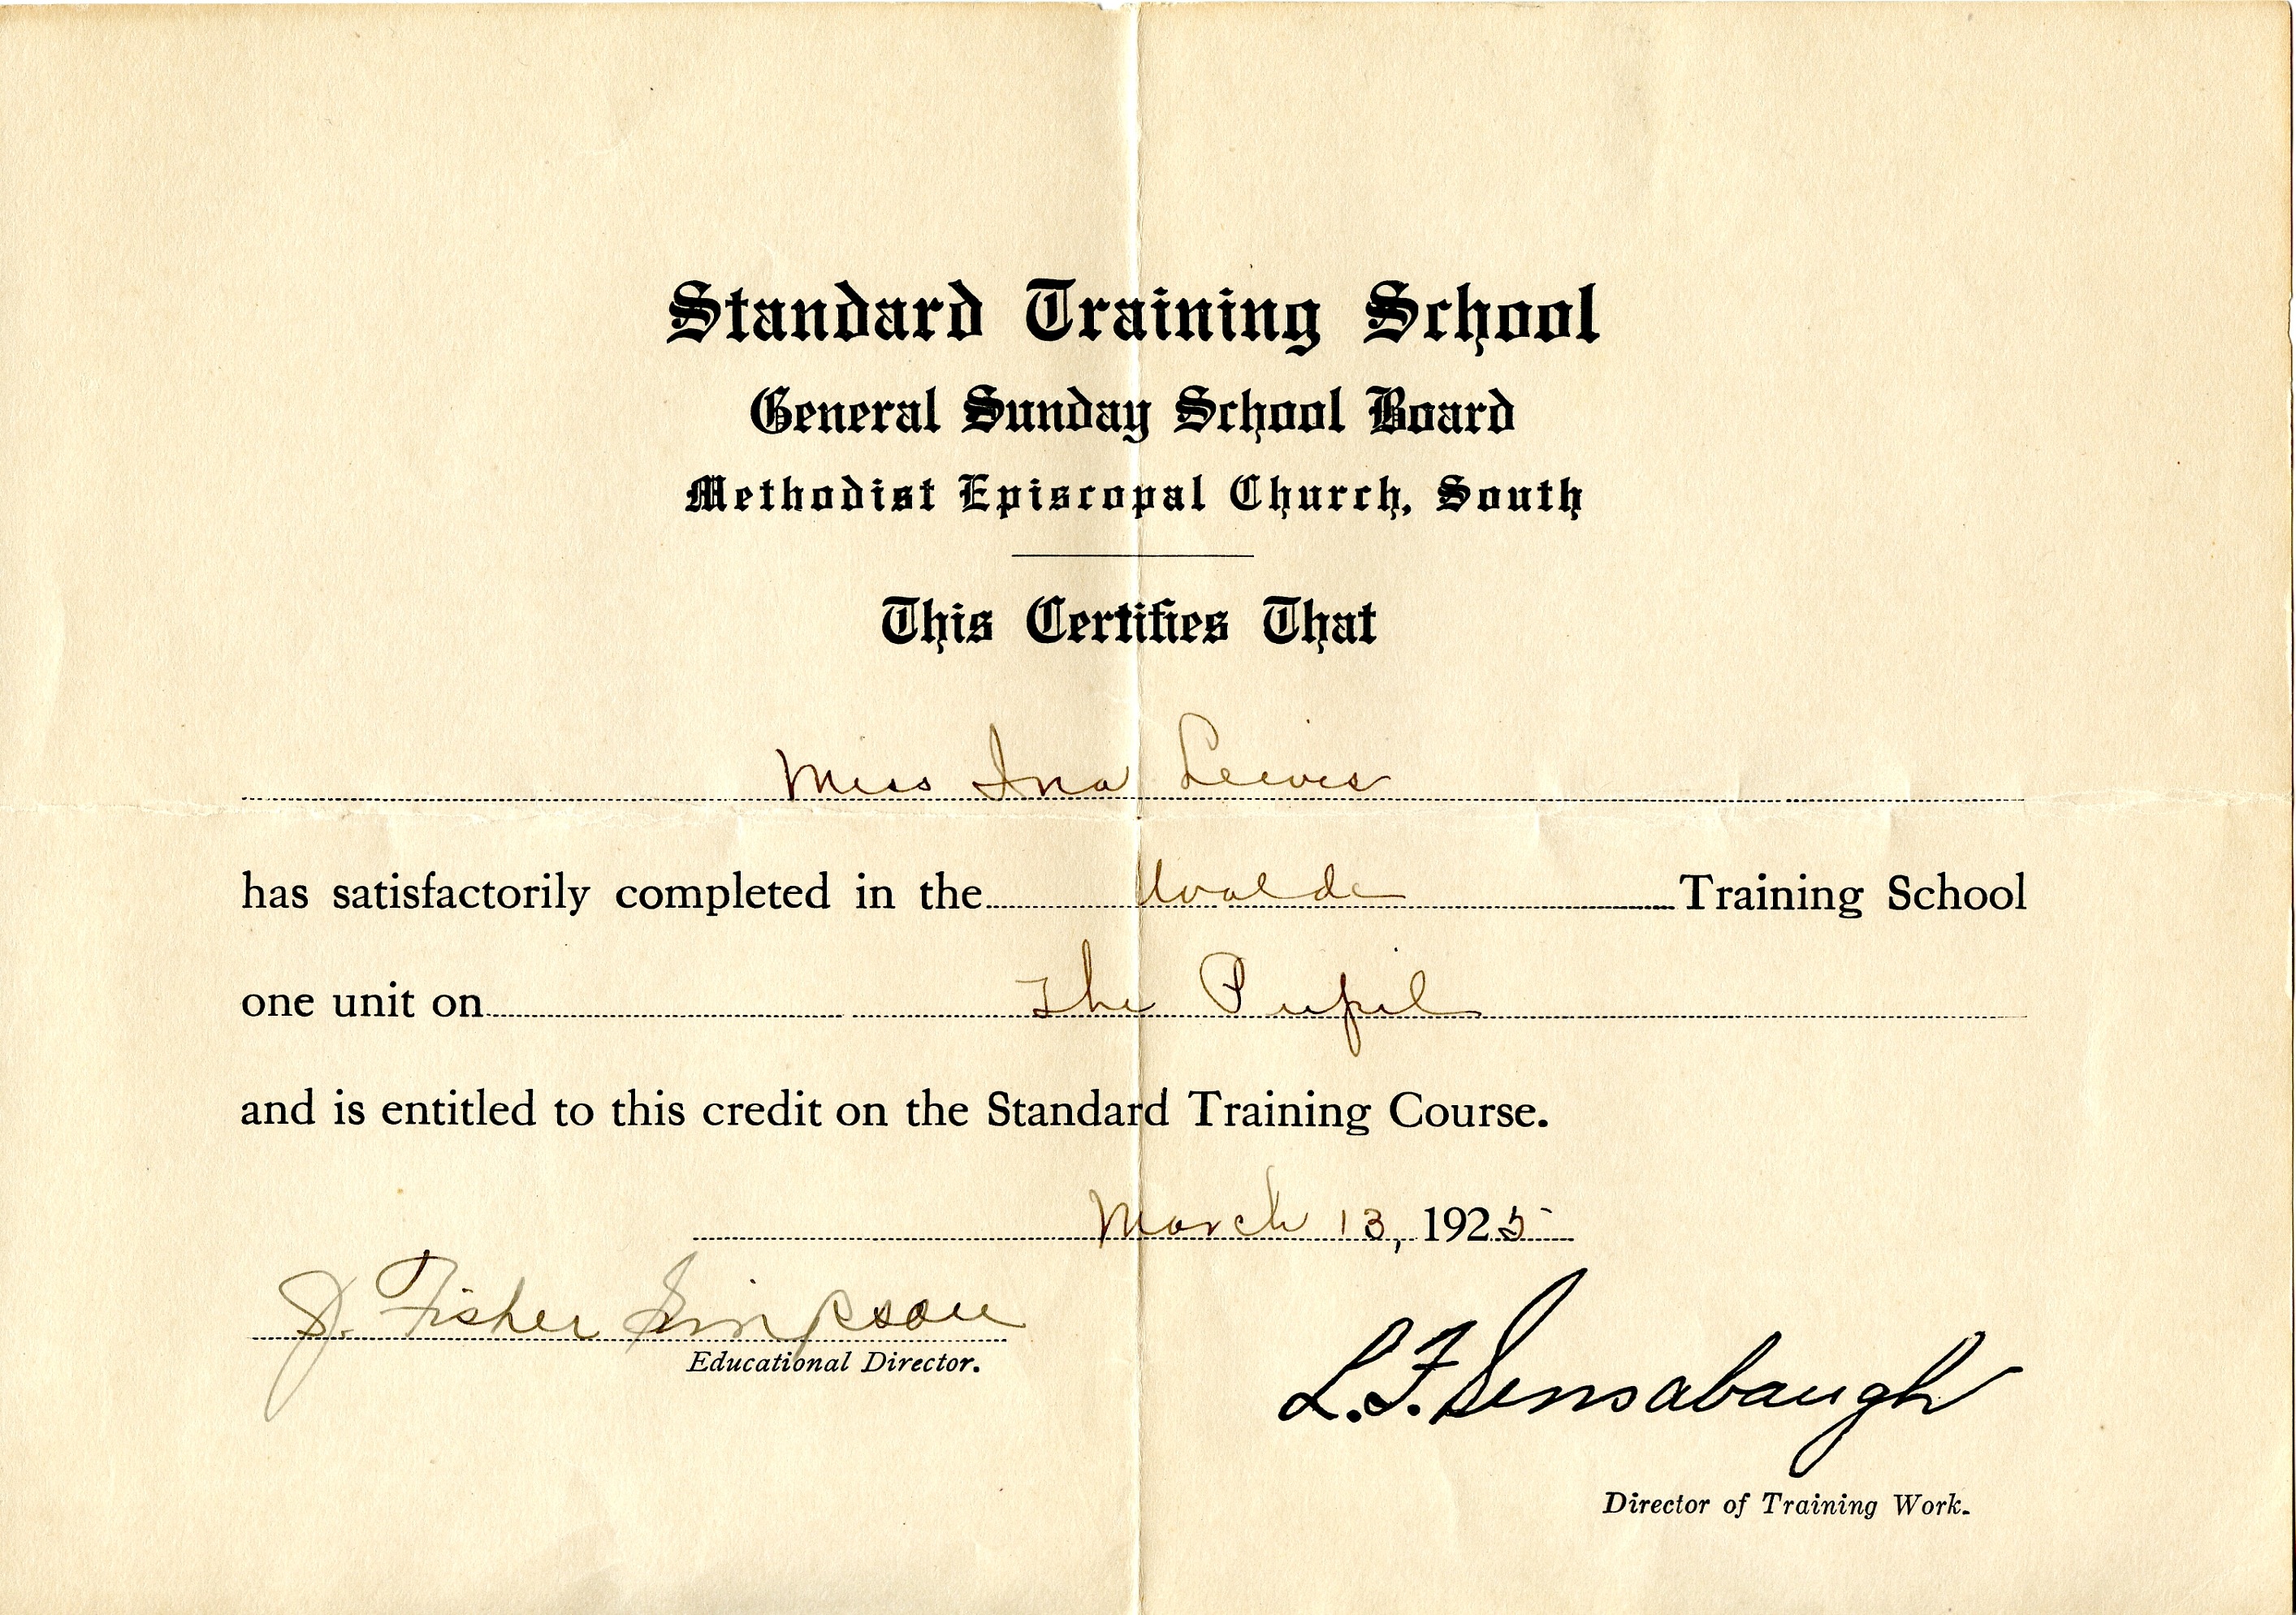 Standard Training School
General Sunday School Board
Methodist Episcopal Church, South
This Certifies That
Miss Ina Lewis
has satisfactorily completed in the Uvalde Training School
one unit on The Pupil
and is entitled to this credit on the Standard Training Course.
March 13, 1925
J. Fisher Simpson
Educational Director.
L. F. Sensabaugh
Director of Training Work.